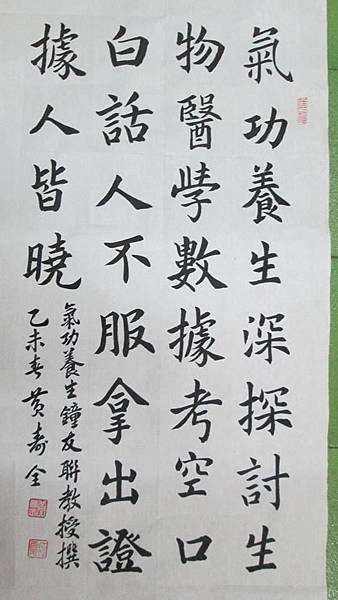 氣功養生深探討生
物醫學數據考空口
白話人不服拿出證
據人皆曉
氣功養生鐘友聯教授撰
乙未春黃壽全